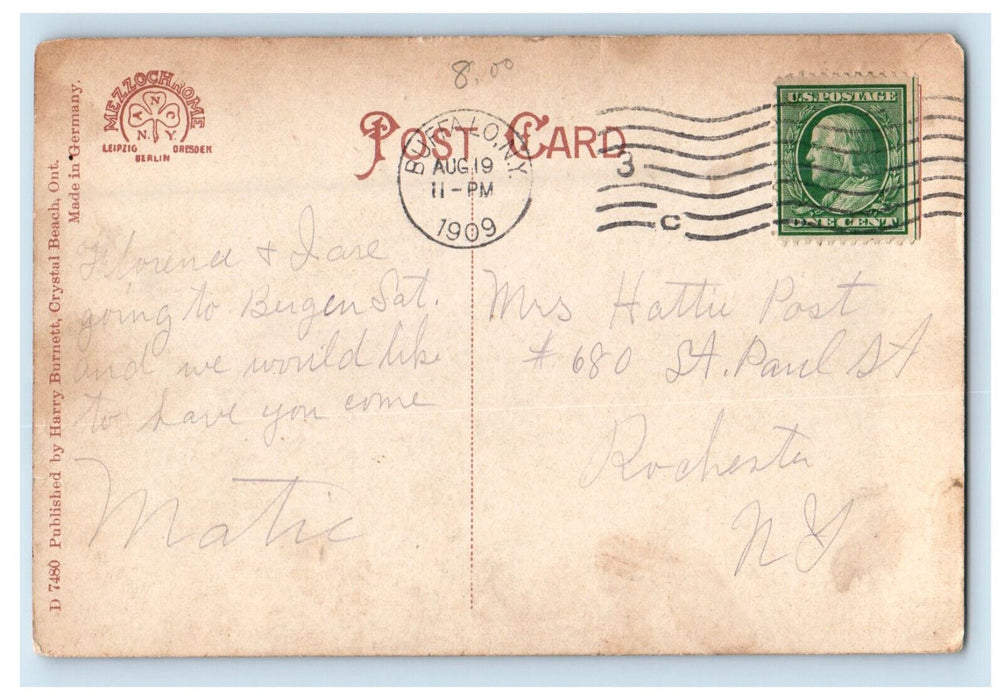 8.00
MEZZOCHROME
A N C
N.Y.
LEIPZIG DRESDEN
BERLIN
POST CARD
BUFFALO, N.Y.
AUG 19
11-PM
1909
3
C
U.S. POSTAGE
ONE CENT
D 7480 Published by Harry Burnett, Crystal Beach, Ont.
Made in Germany.
Florence & I are
going to Bergen Sat.
and we would like
to have you come
Matie
Mrs Hattie Post
# 680 St. Paul St
Rochester
NY